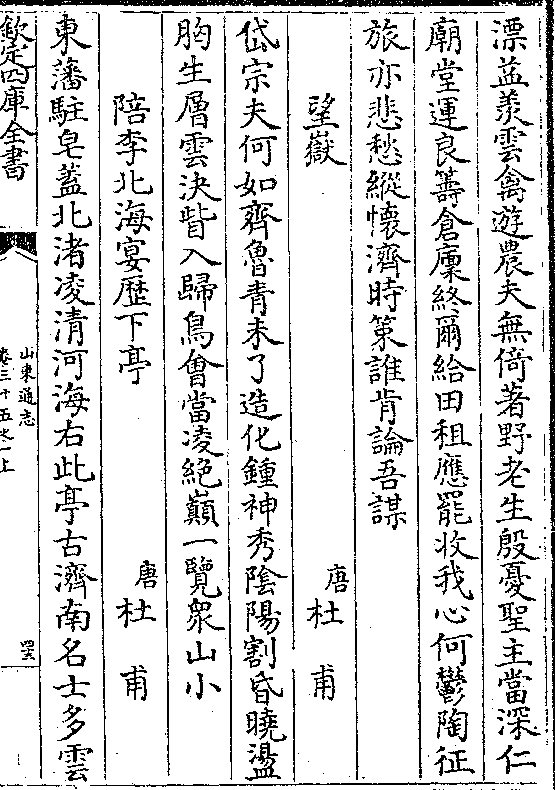 漂益羨雲禽遊農夫無倚著野老生殷憂聖主當深仁
廟堂運良籌倉廩終爾給田租應罷收我心何鬱陶征
旅亦悲愁縱懷濟時策誰肯論吾謀
望嶽 唐 杜甫
岱宗夫何如齊魯青未了造化鍾神秀陰陽割昏曉盪
胸生層雲決眥入歸鳥會當凌絕巔一覽衆山小
陪李北海宴歷下亭 唐 杜甫
東藩駐皂蓋北渚凌清河海右此亭古濟南名士多雲
欽定四庫全書
山東通志
卷三十五之一上